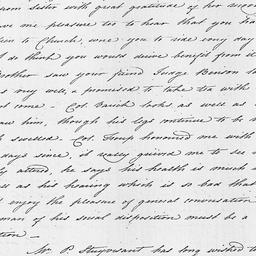 from sister with great gratitude of her recov
ave me pleasure too to hear that you ha
een to Church, were you to ride every day
I do think you would derive benefit from it
Brother saw your friend Judge Benson la
as very well, & promised to take tea with
not come — Col. Varick looks as well as
saw him, though his legs continue to be
h swelled. Col. Troup honoured me with
days since, it really grieved me to see
ly altered, he says his health is much
ell as his hearing which is so bad that
t enjoy the pleasure of general conversation
man of his social disposition must be a
tion —
Mr. P. Stuyvesant has long wished to